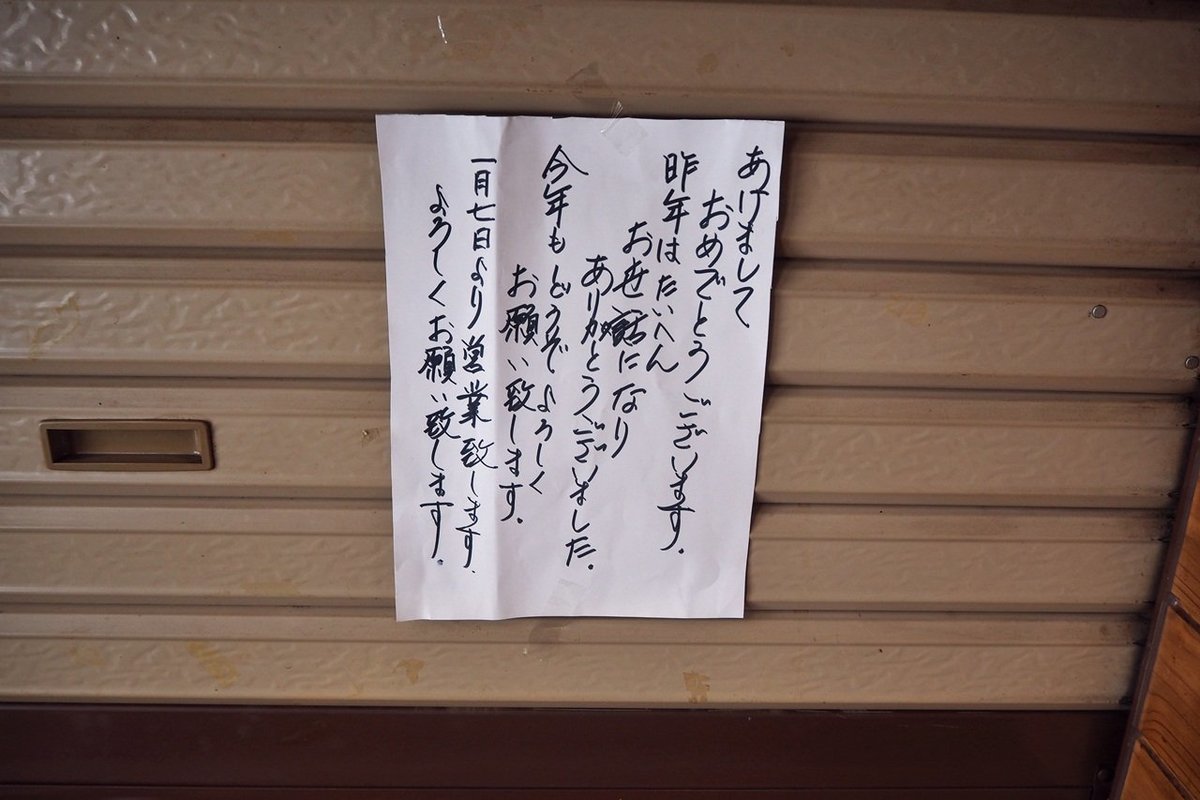 あけまして
おめでとうございます。
昨年はたいへん
お世話になり
ありがとうございました。
今年もどうぞよろしく
お願い致します。
一月七日より営業致します.
よろしくお願い致します。